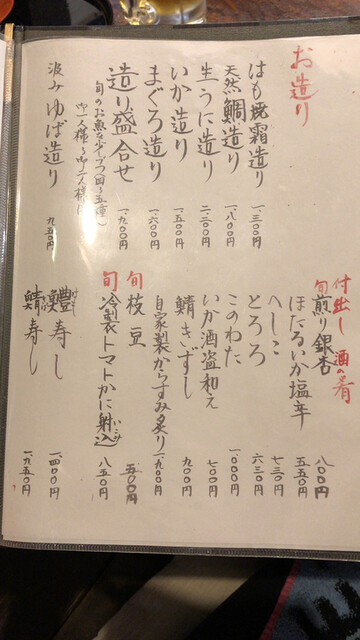 お造り
はも焼霜造り 一、三〇〇円
天然鯛造り 一、八〇〇円
生うに造り 二、二〇〇円
いか造り 一、五〇〇円
まぐろ造り 一、六〇〇円
造り盛合せ 一、九〇〇円
旬のお魚を少しづつ四〜五種
汲みゆば造り 九五〇円
付出し 酒の肴
旬 煎り銀杏 八〇〇円
ほたるいか塩辛 五五〇円
へしこ 七三〇円
とろろ 六三〇円
このわた 一、〇〇〇円
いか酒盗和え 七〇〇円
鯖きずし 九〇〇円
自家製からすみ炙り 一、九〇〇円
旬 枝豆 五〇〇円
旬 冷製トマトかに射込 いこみ 八五〇円
鱧寿し 一、四〇〇円
鯖寿し 一、九五〇円